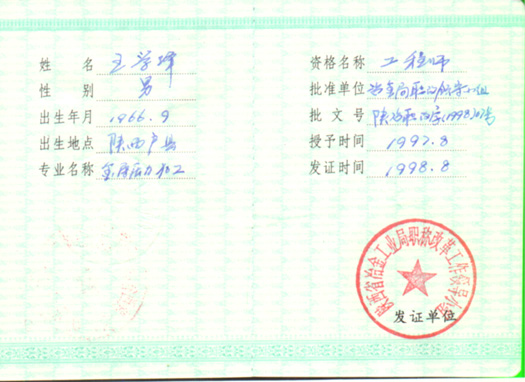 姓 名 王学峰
性 别 男
出生年月 1966.9
出生地点 陕西户县
专业名称 金属压力加工
资格名称 工程师
批准单位 冶金局职改领导小组
批文号 陕冶职改字(1998)02号
授予时间 1997.8
发证时间 1998.8
陕西省冶金工业局职称改革工作领导小组
发证单位